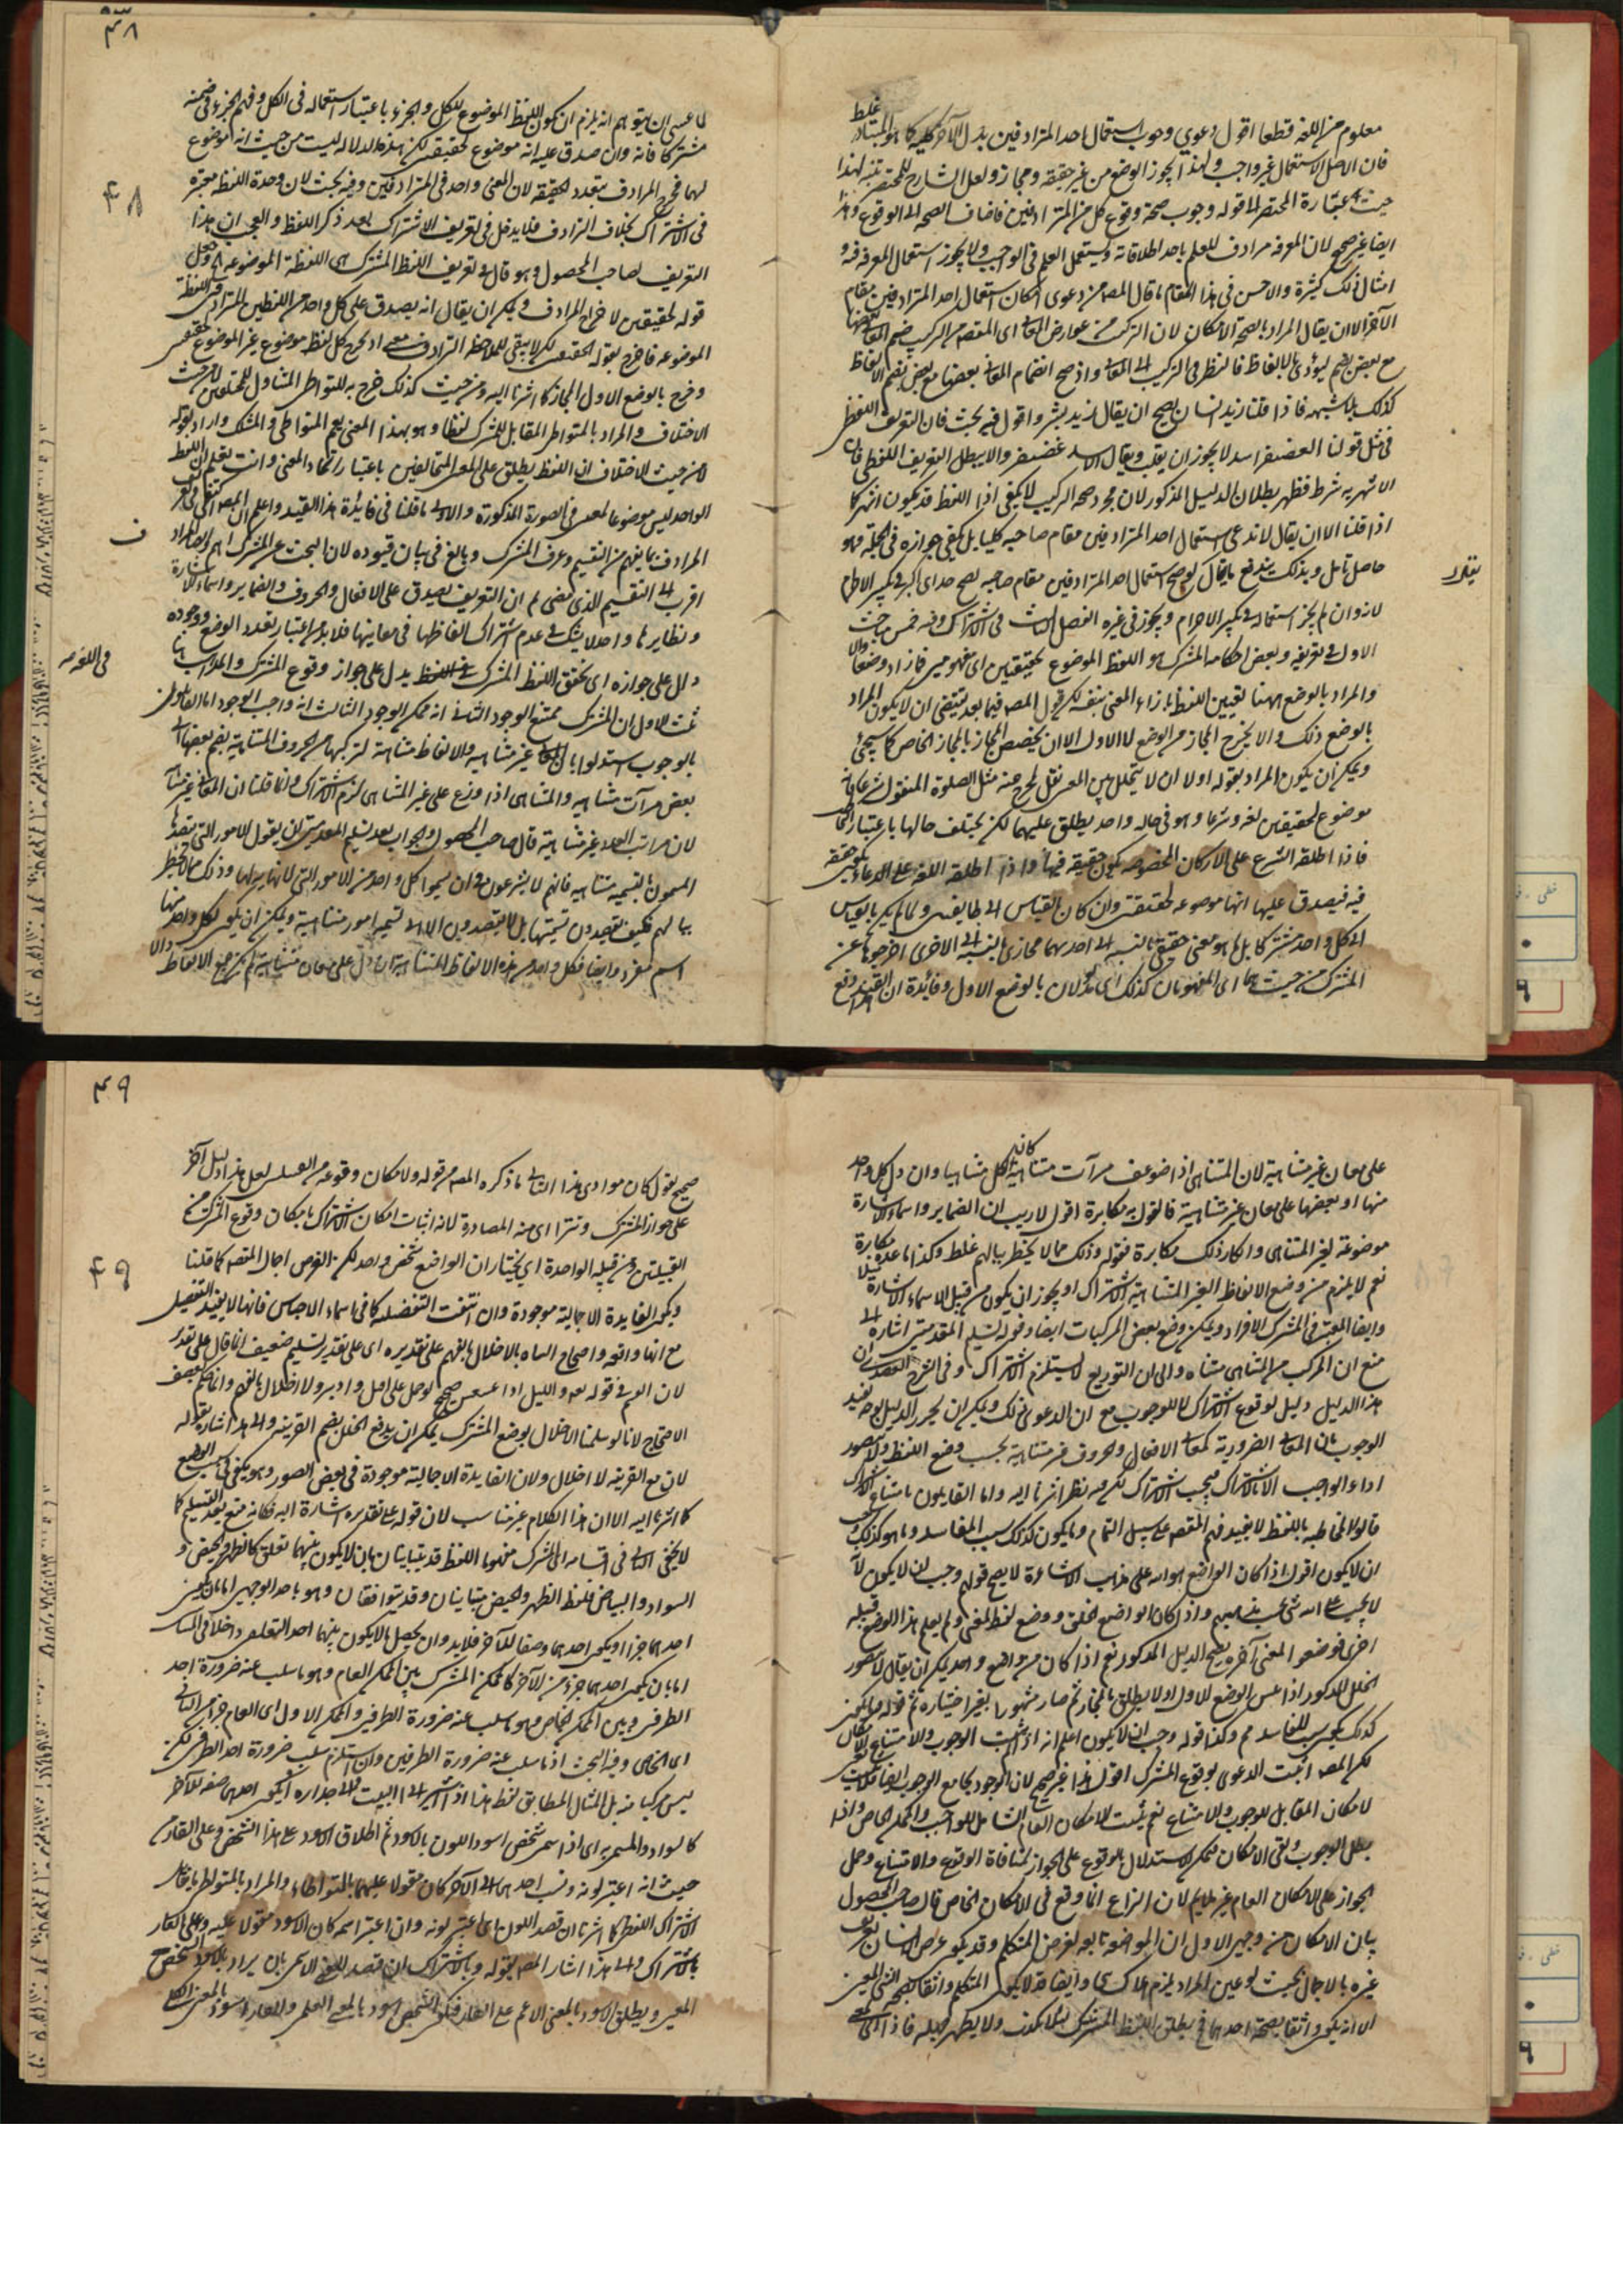 معلوم من اللغه قطعا اقول دعوي وجوب استعمال احد المترادفين بدل الآخر كلية كما هو المتبادر غلط
فان الاصل الاستعمال غير واجب ولهذا يجوز الوضع من غير حقيقه ومجاز ولعل الشارح للمختصر تنبه لهذا
حيث عبارة المختصر الا قوله وجوب صحة وقوع كل من المترادفين فاضاف الصحه الى الوقوع وهذا
ايضا غير صحيح لان المعرفه مرادف للعلم باحد اطلاقاته ويستعمل العلم في الواجب ولا يجوز استعمال المعرفه فيه و
امثال ذلك كثيرة والاحسن في هذا المقام ما قال المصه من دعوى امكان استعمال احد المترادفين مقام
الآخر الا ان يقال المراد بالصحة الامكان لان التركيب من عوارض المعاني اى المقصه من التركيب ضم المعاني بعضها
مع بعض ثم يؤدى بالالفاظ فالنظر في التركيب الى المعاني واذ صح انضمام المعاني بعضها مع بعض يضم الالفاظ
كذلك بلا شبهه فاذا قلنا زيد انسان يصح ان يقال زيد بشر واقول فيه بحث فان التعريف اللفظى
في مثل قولنا الغضنفر اسد لا يجوز ان يقلب ويقال الاسد غضنفر والا يبطل التعريف اللفظى فان
الاشهريه شرط فظهر بطلان الدليل المذكور لان مجرد صحه التركيب لا يكفي اذا اللفظ قد يكون اشهر كما
اذا قلنا الا ان يقال لا ندعى استعمال احد المترادفين مقام صاحبه كليا بل يكفي جوازه في الجمله فهو
حاصل تامل وبذلك يندفع ما يقال لو صح استعمال احد المترادفين مقام صاحبه لصح خداى اكبر في تكبير الاحرام
لانه وان لم يجز استعماله في تكبير الاحرام ويجوز في غيره الفصل الثالث في الاشتراك وفيه خمس مباحث
الاول في تعريفه وبعض احكامه المشترك هو اللفظ الموضوع لحقيقتين اى مفهومين فما زاد وضعا اولا
والمراد بالوضع ههنا تعيين اللفظ بازاء المعنى بنفسه لكن قول المصه فيما بعد يقتضى ان لا يكون المراد
بالوضع ذلك والا يخرج المجاز من الوضع لا الاول الا ان يخصص المجاز بالمجاز الخاص كما سيجئ
ويمكن ان يكون المراد بقوله اولا ان لا يتخلل بين المعنيين نقل يخرج منه مثل الصلوة المنقول شرعا فانه
موضوع لحقيقتين لغه وشرعا وهو في حاله واحد يطلق عليهما لكن يختلف حالها باعتبار الحال
فاذا اطلقه الشرع على الاركان المخصوصه يكون حقيقه فيها واذا اطلقه اللغه على الدعاء يكون حقيقه
فيه فيصدق عليها انها موضوعه لحقيقتين وان كان بالقياس الى طايفتين ولما لم يكن بالقياس
الى كل واحد مشتركا بل ما هو معنى حقيقي بالنسبه الى احديهما مجازى بالنسبه الى الاخرى اخرجوها عن
المشترك من حيث هما اى المفهومان كذلك اى مدلولان بالوضع الاول وفائدة ان القيد دفع
يقلد
لما عسى ان يتوهم انه يلزم ان يكون اللفظ الموضوع للكل والجزء باعتبار استعماله في الكل وفهم الجزء في ضمنه
مشتركا فانه وان صدق عليه انه موضوع لحقيقتين لكن هذه الدلاله ليست من حيث انه موضوع
لهما فخرج المرادف بتعدد الحقيقه لان المعنى واحد في المترادفين وفيه بحث لان وحدة اللفظ معتبرة
في الاشتراك بخلاف الترادف فلا يدخل في تعريف الاشتراك بعد ذكر اللفظ والعجب ان هذا
التعريف لصاحب المحصول وهو قال في تعريف اللفظ المشترك هى اللفظة الموضوعه وجعل
قوله لحقيقتين لاخراج المرادف ويمكن ان يقال انه يصدق على كل واحد من اللفظين المترادفين اللفظة
الموضوعه فاخرج بقوله لحقيقتين لكن لا يبقى للملاحظه الترادف معنى اذ يخرج كل لفظ موضوع غير الموضوع لحقيقتين
وخرج بالوضع الاول المجاز كما اشرنا اليه ومن حيث كذلك خرج به المتواطى المتناول للمختلفين لا من حيث
الاختلاف والمراد بالمتواطى المقابل للمشترك لفظا وهو بهذا المعنى يعم المتواطى والمشكك واراد بقوله
لا من حيث الاختلاف ان اللفظ يطلق على المعنى المتخالفين باعتبار اتحاد المعنى وانت تعلم ان اللفظ
الواحد ليس موضوعا لمعنيين في الصورة المذكورة والاولى ما قلنا في فائدة هذا القيد واعلم ان المصه اكتفى في تعريف
المرادف بما يفهم من التقسيم وعرف المشترك وبالغ في بيان قيوده لان البحث عن المشترك اهم وايضا المراد
اقرب الى التقسيم الذي مضى ثم ان التعريف يصدق على الافعال والحروف والضماير واسماء الاشارة
ونظايرها واحد لا يشك في عدم اشتراك الفاظها في معاينها فلا بد من اعتبار تعدد الوضع ووجوده
دال على جوازه اى تحقق اللفظ المشترك في اللفظ يدل على جواز وقوع المشترك والمذاهب
ثلث الاول ان المشترك ممتنع الوجود الثاني انه ممكن الوجود الثالث انه واجب الوجود اما القائلون
بالوجوب استدلوا بان المعاني غير متناهيه والالفاظ متناهية لتركبها من الحروف المتناهية بضم بعضها الى
بعض مرآت متناهيه والمتناهى اذا وزع على غير المتناهى لزم الاشتراك وانما قلنا ان المعاني غير متناهيه
لان مراتب العدد غير متناهية قال صاحب المحصول والجواب بعد تسليم المقدمتين ان يقول الامور التي يقصدها
المسمون بالتسميه متناهيه فانهم لا يشرعون في ان يسموا كل واحد من الامور التي لا نهايه لها وذلك مما لا يخطر
ببالهم فكيف يقصدون تسميتها بل لا يقصدون الا الى تسميه امور متناهية ويمكن ان يكون لكل واحد منها
اسم مفرد وايضا فكل واحد من هذه الالفاظ المتناهية ان دل على معان متناهيه لم يكن جميع الالفاظ دالا
ف
في اللغه صه
٤٨
على معان غير متناهية لان المتناهى اذا ضوعف مرآت متناهية كان الكل متناهيا وان دل كل واحد
منها او بعضها على معان غير متناهية فالقول به مكابرة اقول لا ريب ان الضماير واسماء الاشارة
موضوعه لغير المتناهى وانكار ذلك مكابرة فقوله وذلك مما لا يخطر ببالهم غلط وكذا ما عده مكابرة
نعم لا يلزم من وضع الالفاظ الغير المتناهية الاشتراك او يجوز ان يكون من قبيل الاسماء الاشارة
وايضا المعتبر في المشترك الافراد ويمكن وضع بعض المركبات ايضا وقوله تسليم المقدمتين اشارة الى
منع ان المركب من المتناهى متناه والى ان التوزيع لا يستلزم الاشتراك وفي الشرح العضدى ان
هذا الدليل دليل لوقوع الاشتراك لا للوجوب مع ان الدعوى ذلك ويمكن ان يحرر الدليل بوجه يفيد
الوجوب بان المعاني الضرورية كمعاني الافعال والحروف غير متناهية يجب وضع اللفظ ولا يتصور
اداء الواجب الا بالاشتراك فيجب الاشتراك لكن فيه نظر اشرنا اليه واما القايلون بامتناع الاشتراك
قالوا المخاطبه باللفظ لا يفيد فهم المقصه على سبيل التمام وما يكون كذلك سبب المفاسد وما هو كذلك يجب
ان لا يكون اقول اذا كان الواضع هو الله على مذهب الاشاعرة لا يصح قولهم وجب ان لا يكون لا
لا يجب على الله شئ عند مذهبهم واذا كان الواضع الخلق ووضع لفظ لمعنى ولم يعلم هذا الوضع قبيله
اخرى فوضعوا لمعنى آخر لم يصح الدليل المذكور نعم اذا كان من واضع واحد يمكن ان يقال لا يتصور
الخلل المذكور اذا عين الوضع الاول اولا يطلق بالمجاز ثم صار مشهورا بغير اختياره ثم قوله وما يكون
كذلك يكون سبب المفاسد مم وكذا قوله وجب ان لا يكون اعلم انه اذا لم يثبت الوجوب والامتناع بقى الامكان
لكن المصه اثبت الدعوى بوقوع المشترك اقول هذا غير صحيح لان الوجود يجامع الوجوب ايضا فلا يثبت
لامكان المقابل للوجوب والامتناع نعم يثبت الامكان العام الشامل للواجب والممكن الخاص واذا
بطل الوجوب وبقى الامكان يمكن الاستدلال بالوقوع على الجواز لمنافاة الوقوع والامتناع وحمل
الجواز على الامكان العام غير ملايم لان النزاع انما وقع في الامكان الخاص قال صاحب المحصول
بيان الامكان من وجهين الاول ان المواضعه تابعه لغرض المتكلم وقد يكون غرض الانسان تعريف
غيره بالاجمال بحيث لو عين المراد يلزم هلاك شئ وايضا قد لا يكون المتكلم واثقا بصحه الشئ المعين
الا انه يكون واثقا بصحة احدهما فح يطلق اللفظ المشترك لئلا يكذب ولا يظهر جهله فاذا
صحيح نقول كان موادى هذا الثاني ما ذكره المصه من قوله ولامكان وقوعه من القبيلتين لعل هذا دليل آخر
على جواز المشترك وتنزل اى منه المصادرة لانه اثبات امكان الاشتراك بامكان وقوع المشترك من
القبيلتين ومن قبيله الواحدة اى يختار ان الواضع شخص واحد لكن الغرض اجمال المقصه كما قلنا
ويكون الفايدة الاجمالية موجودة وان انتفت التفضيله كما في اسماء الاجناس فانها لا يفيد التفصيل
مع انها واقعه واحتجاج المناه بالاخلال بالفهم على تقديره اى على تقدير تسليم ضعيف انما قال على تقدير
لان الوقوع في قوله تعه والليل اذا عسعس صحيح لو حمل على اقبل وادبر ولا اخلال بالفهم وانما حكم بضعف
الاحتجاج لانا لو سلمنا الاخلال بوضع المشترك يمكن ان يدفع الخلل بضم القرينه والى هذا اشارة بقوله
لان مع القرينه لا اخلال ولان الفايدة الاجمالية موجودة في بعض الصور وهو يكفي سبب الوضع
كما اشرنا اليه الا ان هذا الكلام غير مناسب لان قوله على تقديره اشارة اليه فكانه منع بعد التسليم كما
لا يخفى الثاني في اقسامه اى المشترك مفهوما اللفظ قد يتباينان بان لا يكون بينهما تعلق كالطهر والحيض و
السواد والبياض فلفظ الطهر والحيض متباينان وقد يتوافقان وهو باحد الوجهين اما بان يكون
احدهما جزا او يكون احدهما وصفا للآخر فلا بد وان يحصل بالا يكون بينهما احد التعلقين داخلا في المتباين
اما بان يكون احدهما جزء من الآخر كالممكن المشترك بين الممكن العام وهو ما سلب عنه ضرورة احد
الطرفين وبين الممكن الخاص وهو ما سلب عنه ضرورة الطرفين والممكن الاول اى العام جزء من الثاني
اى الخاص وفيه البحث اذ ما سلب عنه ضرورة الطرفين وان استلزم سلب ضرورة احد الطرفين لكن
ليس مركبا منه بل المثال المطابق لفظ هذا اذا اشير الى البيت والى جداره او يكون احدهما صفه للآخر
كالسواد والمسمى به اى اذا سمى شخص اسود اللون بالاسود ثم اطلاق الاسود على هذا الشخص وعلى القار من
حيث انه اعتبر لونه ونسب احدهما الى الآخر كان مقولا عليهما بالتواطاء والمراد بالمتواطى ما يقابل
الاشتراك اللفظى كما اشرنا ان قصد اللون اى اعتبر لونه وان اعتبر اسمه كان الاسود مقولا عليه وعلى القار
بالاشتراك والى هذا اشار المصه بقوله وبالاشتراك ان قصد اللقب الآخر بان يراد بالاسود الشخص
المعين ويطلق الاسود بالمعنى الاعم على القار فيكون الشخص اسود بالمعنى العلمى والقار اسود بالمعنى
٤٩